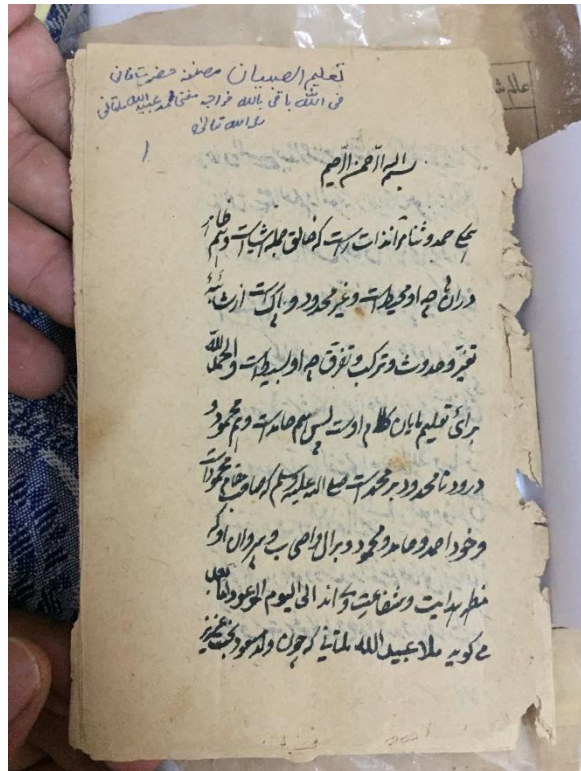 تعلیم الصبیان مصنفہ حضرت فانی
فی اللہ باقی باللہ خواجہ مفتی محمد عبید اللہ ملتانی
رحمہ اللہ تعالیٰ
۱
بسم اللہ الرحمن الرحیم
جمیع حمد و ثنا مر آنذات راست کہ خالق جملہ اشیاست و ہم ظاہر
دران ہا چہ او محیط است و غیر محدود و پاک است از شائبہ
تغیر و حدوث و ترکب و تفرق چہ او بسیط است و الحمد للہ
برای تعلیم مایان کلام اوست پس ہم حامد است و ہم محمود و
درود نا محدود بر محمد است صلی اللہ علیہ وسلم کہ صاحب مقام محمود است
و خود احمد و حامد و محمود و بر ال و اصحاب و پیروان او کہ
مظہر ہدایت و شفاعت وی اند الی الیوم الموعود اما بعد
می گوید ملا عبید اللہ ملتانی کہ چون ولد مسعود بخت عزیز
عالم